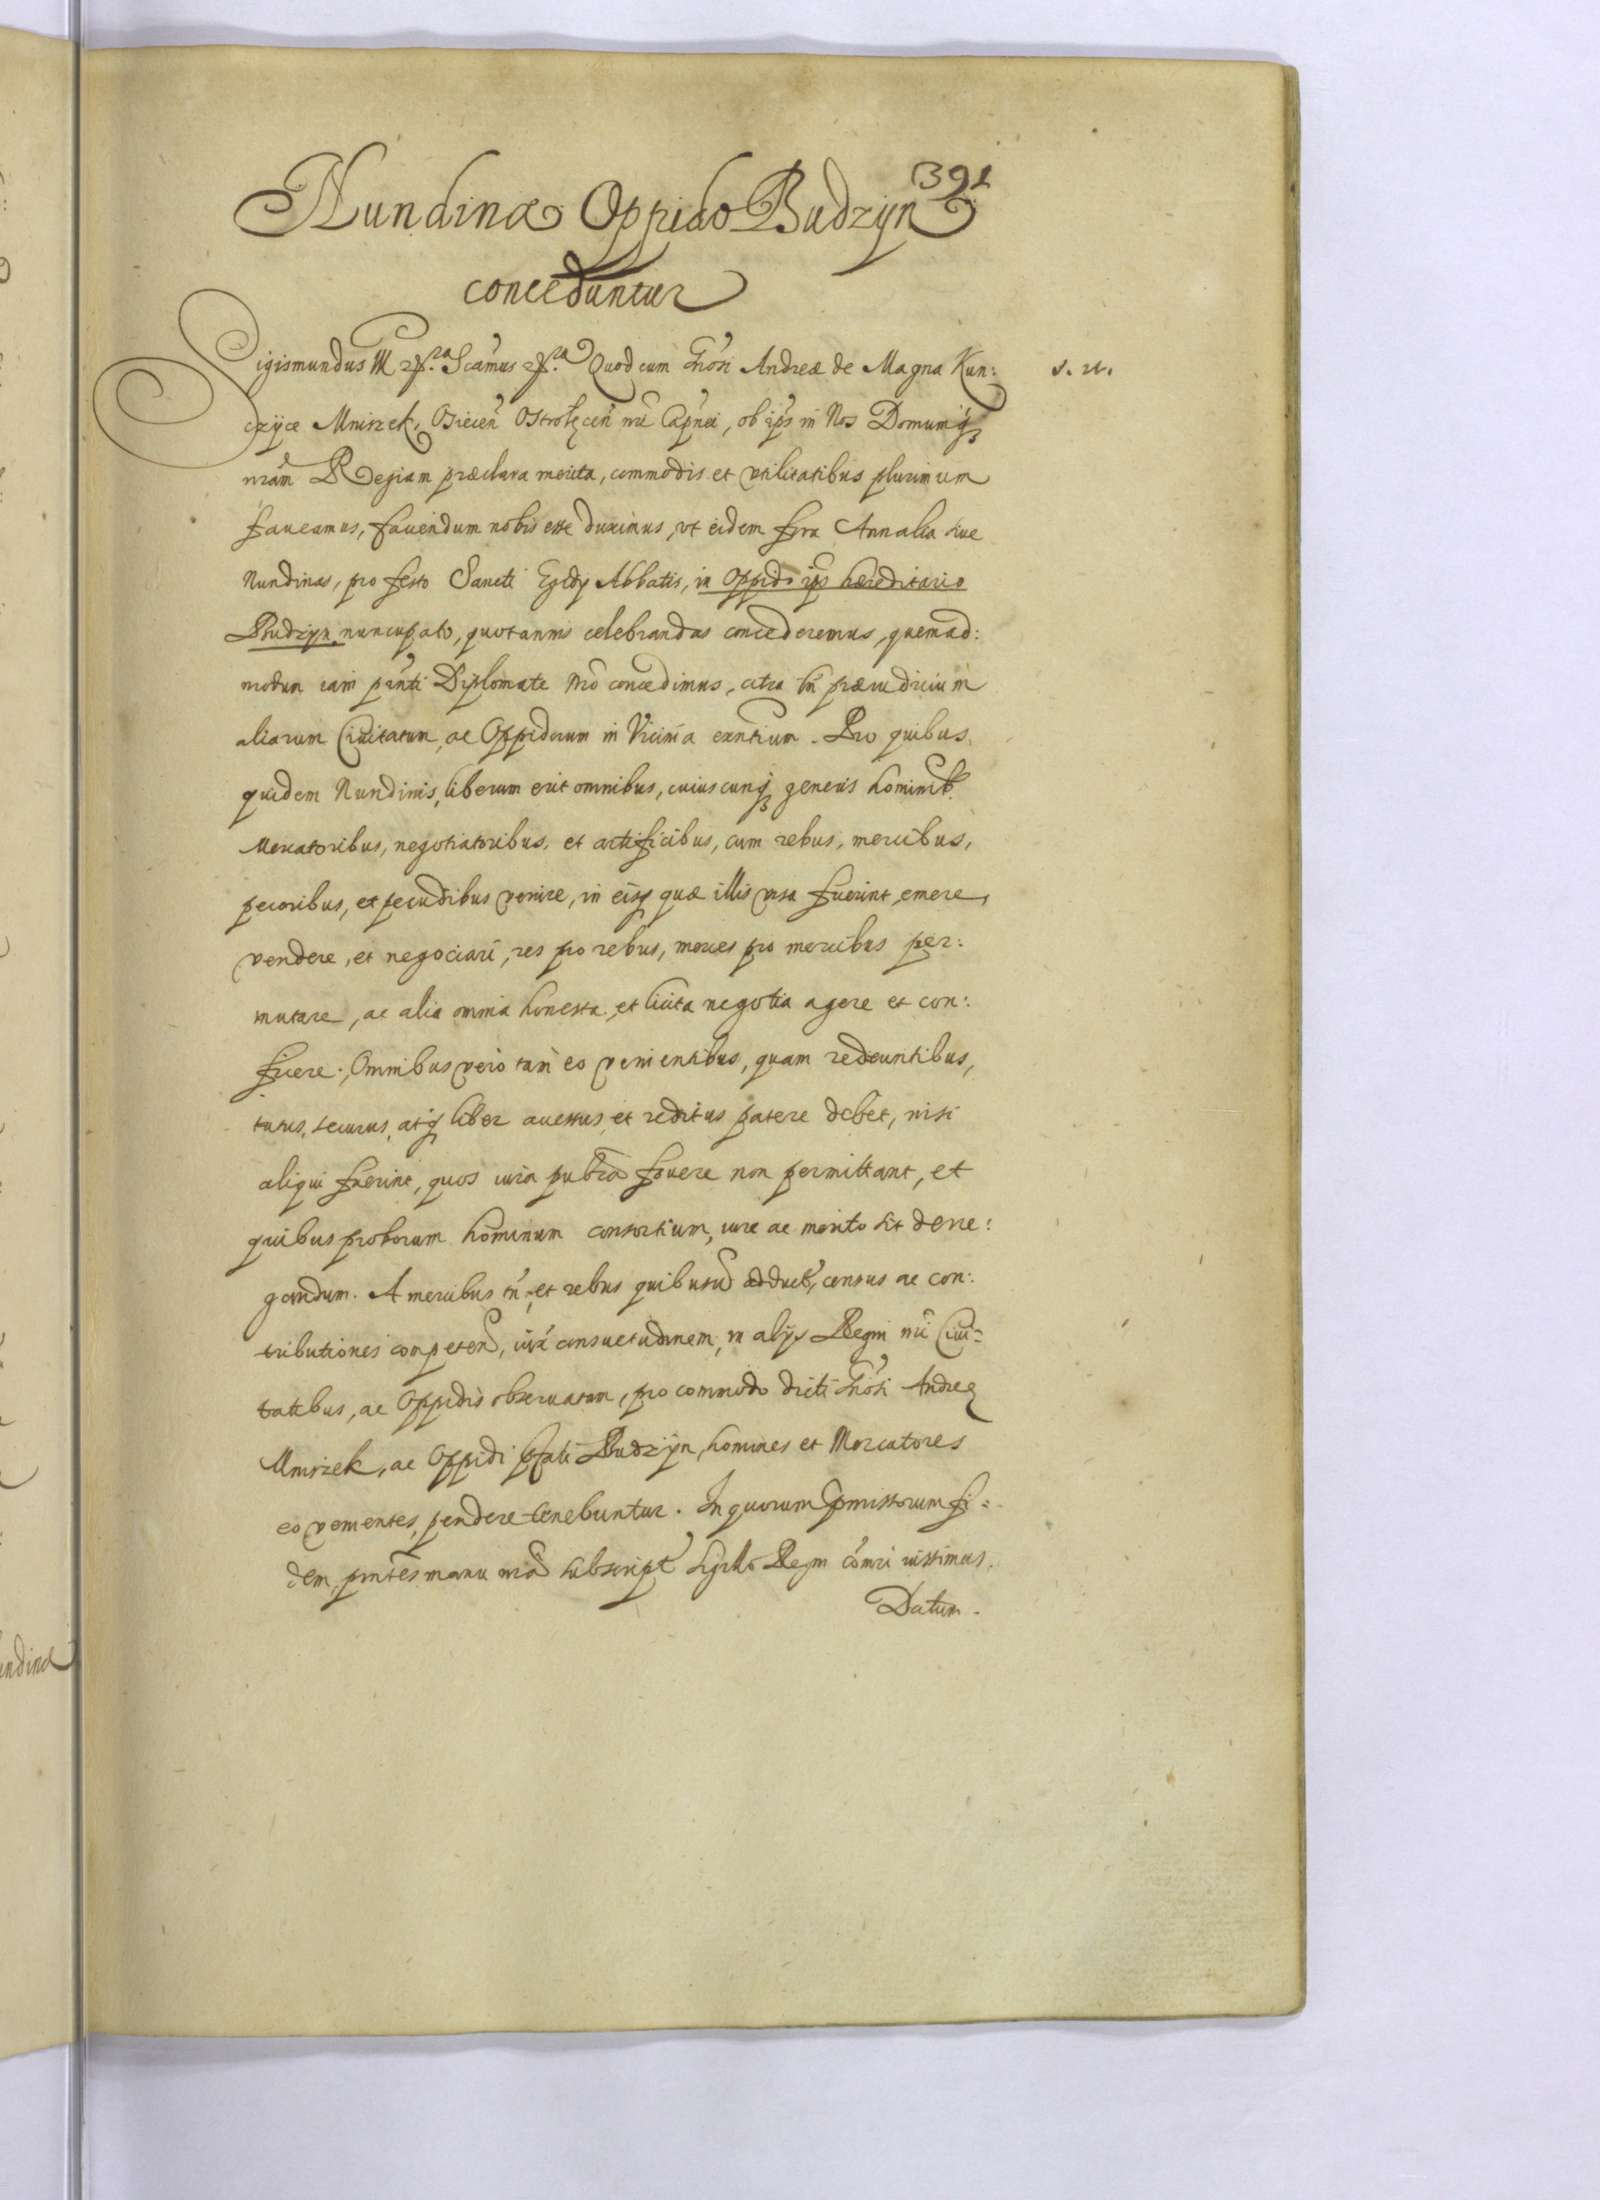 391
Nundinæ Oppido Budzyn
conceduntur
Sigismundus III etc. Scamus etc. Quod cum Gnosi Andreæ de Magna Kun:
s. n.
czyce Mniszek, Osiecen Ostrołęcen nri Capnei, ob ips in Nos Domumq
nram Regiam præclara merita, commodis et vtilitatibus plurimum
faueamus, fauendum nobis esse duximus, vt eidem fora Annalia siue
Nundinas, pro festo Sancti Egidy Abbatis, in Oppido ips hæreditario
Budzyn nuncupato, quotannis celebrandas concederemus, quemad:
modum iam pnti Diplomate nro concedimus, citra tn præiudicium
aliarum Ciuitatum, ac Oppidorum in Vicinia exntium. Pro quibus
quidem Nundinis, liberum erit omnibus, cuiuscunq generis hominib.
Mercatoribus, negotiatoribus, et artificibus, cum rebus, mercibus,
pecoribus, et pecudibus venire, in eisq quæ illis visa fuerint, emere,
vendere, et negociari, res pro rebus, merces pro mercibus per:
mutare, ac alia omnia honesta, et licita negotia agere et con:
ficere. Omnibus vero tam eo venientibus, quam redeuntibus,
tutus, securus, atq liber accessus, et reditus patere debet, nisi
aliqui fuerint, quos iura publica fouere non permittant, et
quibus proborum hominum consortium, iure ac merito sit dene:
gandum. A mercibus tn, et rebus quibusuis adduct, census ac con:
tributiones competen, iuxa consuetudinem, in alijs Regni nri Ciui:
tatibus, ac Oppidis obseruatam, pro commodo dicti Gnosi Andreæ
Mniszek, ac Oppidi pfati Budzyn, homines et Mercatores
eo venientes, pendere tenebuntur. In quorum pmissorum fi:
dem, pntes manu nra subscript sigillo Regni comri iussimus.
Datum.